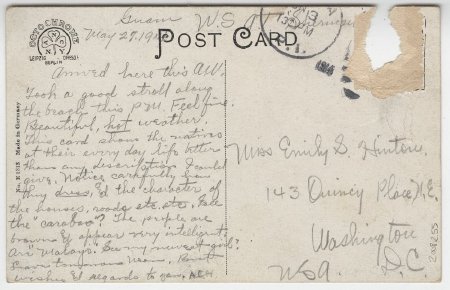 Guam U.S.A.
May 27, 19
OCTOCHROME
LEIPZIG BERLIN DRESD
POST CARD
Arrived here this A.M.
Took a good stroll along
the beach this P.M. Feel fine.
Beautiful, hot weather.
This card shows the natives
at their every day life better
than any description I could
give. Notice carefully how
they dress, & the character of
the houses, roads etc. etc. See
the "carabao"? The people are
browns & appear very intelligent.
Are Malays. See my newest girl?
Leave tomorrow noon. Best
wishes & regards to you. ACH
No. K1813 Made in Germany
Miss Emily G. Hinton
143 Quincy Place N.E.
Washington
D.C.
USA.